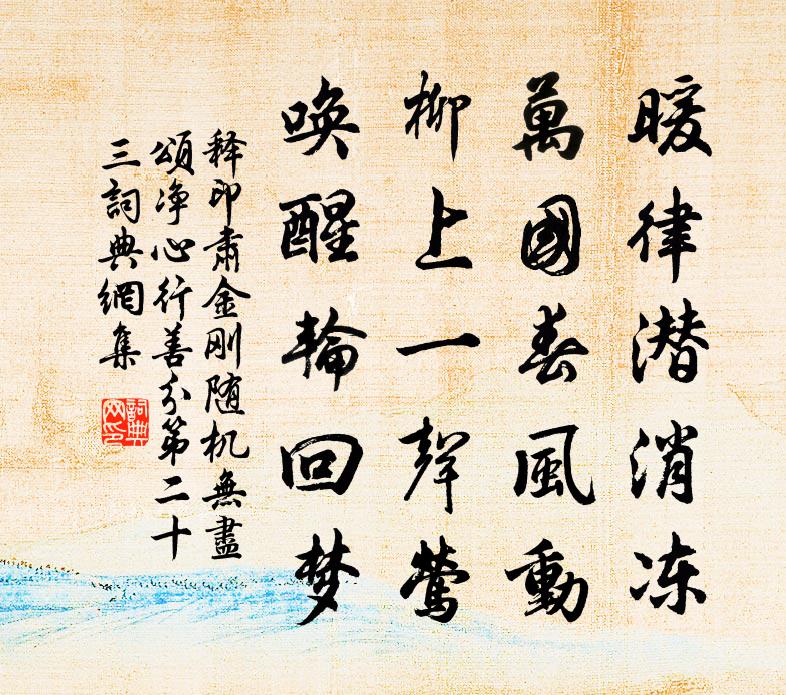 暖律潜消冻
萬國春風動
柳上一聲鶯
唤醒輪回梦
释印肃金刚随机無盡
頌净心行善分第二十
三詞典網集
詞典
网印